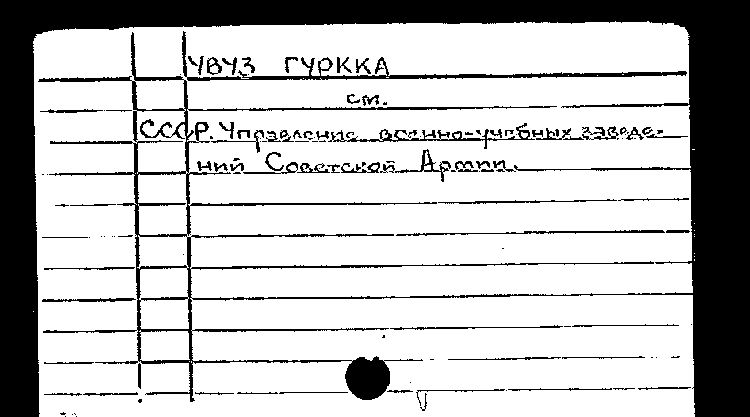 УВУЗ ГУРККА
см.
СССР. Управление военно-учебных заведе-
ний Советской Армии.